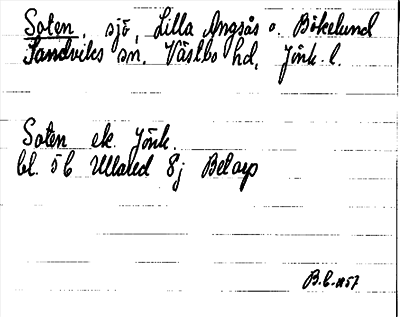 Soten, sjö, Lilla Ängsås o. Bökelund
Sandviks sn. Västbo hd, Jönk. l.
Soten ek. Jönk.
bl. 5b Ullared 8j Belarp